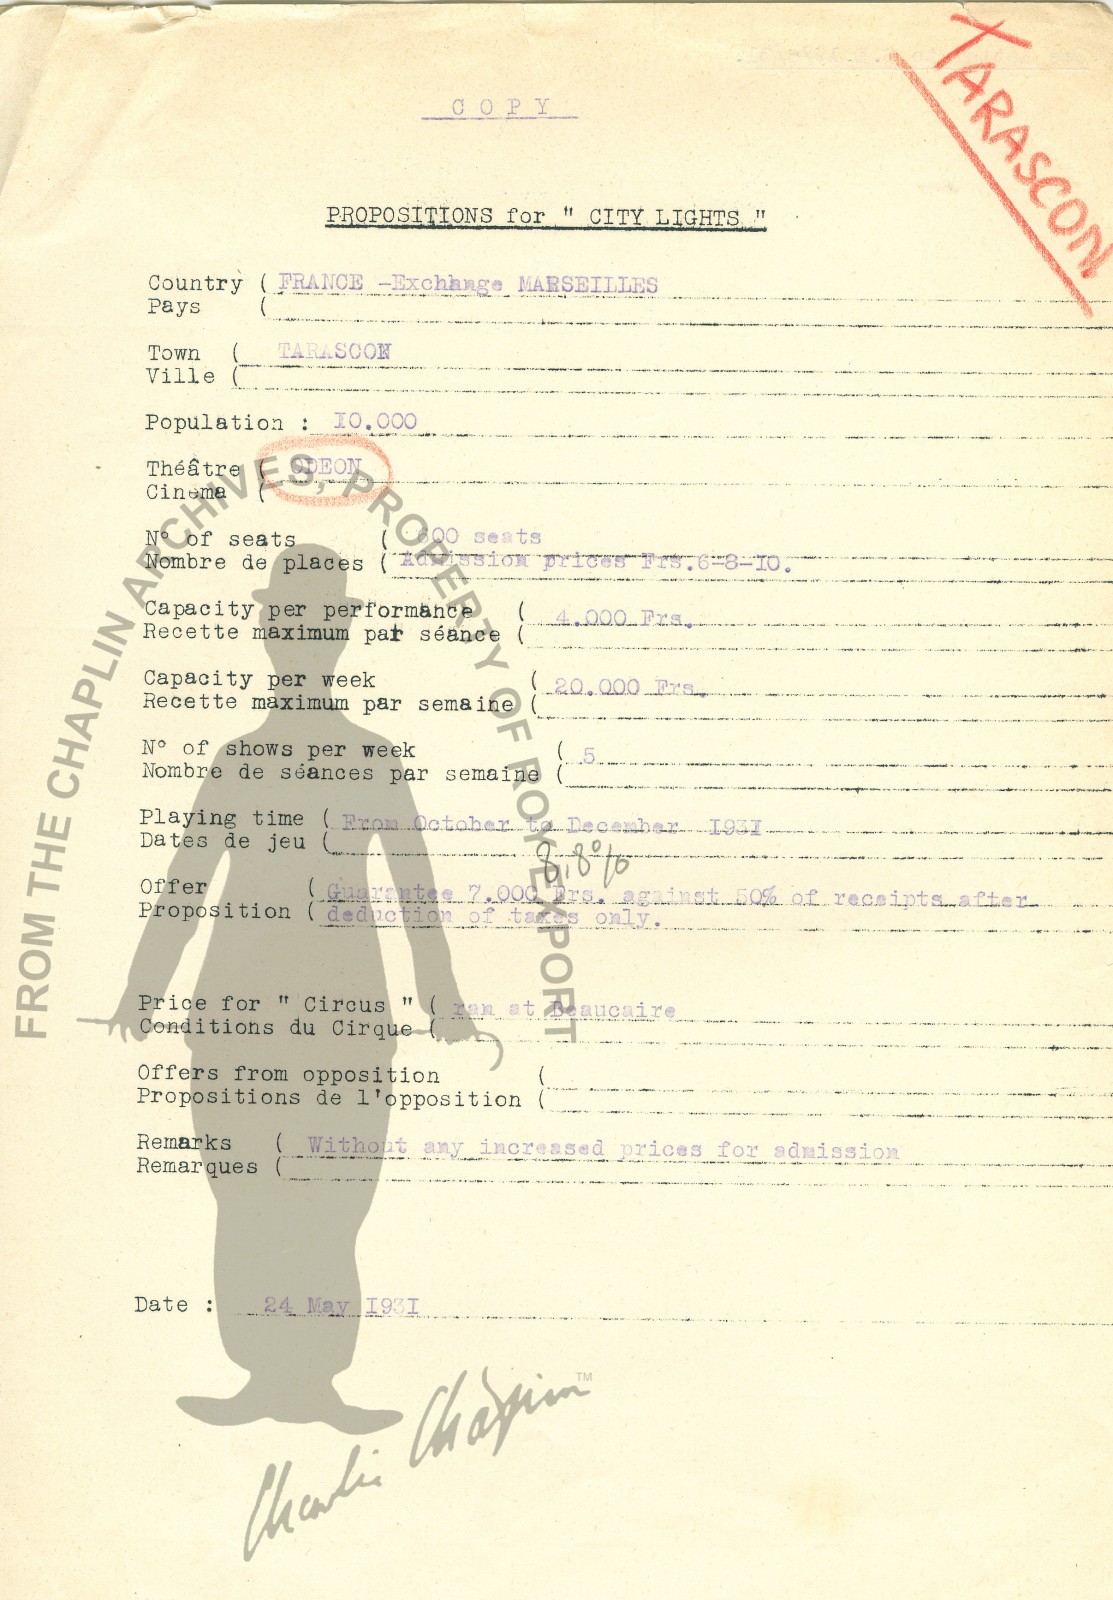 TARASCON
COPY
PROPOSITIONS for " CITY LIGHTS "
Country ( FRANCE -Exchhage MARSEILLES
Pays (
Town ( TARASCON
Ville (
Population : I0.000
Théâtre ( ODEON
Cinema (
N° of seats ( 600 seats
Nombre de places ( Admission prices Frs.6-8-I0.
Capacity per performance ( 4.000 Frs.
Recette maximum par séance (
Capacity per week ( 20.000 Frs.
Recette maximum par semaine (
N° of shows per week ( 5
Nombre de séances par semaine (
Playing time ( From October to December I93I
Dates de jeu (
8.8%
Offer ( Guarantee 7.000 Frs. against 50% of receipts after
Proposition ( deduction of taxes only.
Price for " Circus " ( ran at Beaucaire
Conditions du Cirque (
Offers from opposition (
Propositions de l'opposition (
Remarks ( Without any increased prices for admission
Remarques (
Date : 24 May I93I
FROM THE CHAPLIN ARCHIVES, PROPERTY OF ROY EXPORT
Charlie Chaplin TM